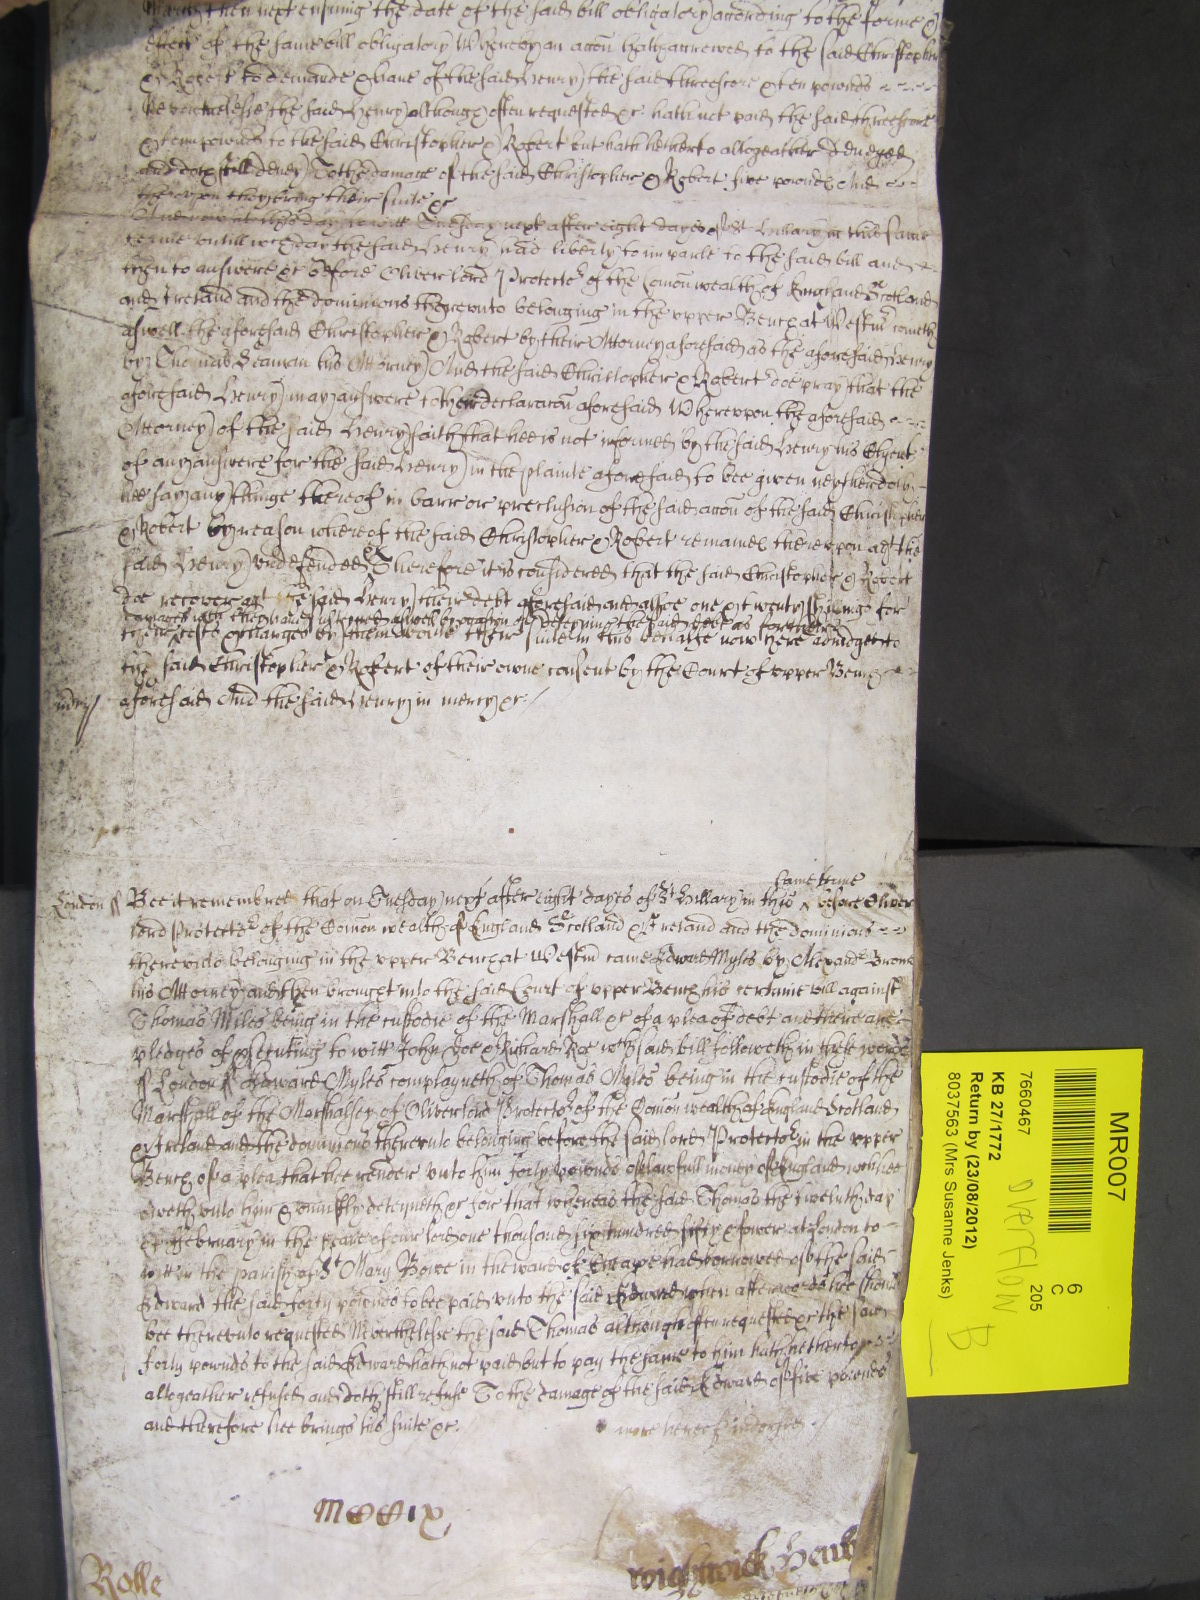 March then next ensuing the date of the said bill obligatory according to the forme &
effect of the same bill obligatory Whereby an accon hath accrewed to the said Christopher
& Robert to demaunde & have of the said Henry the said threescore & ten pounds
Neverthelesse the said Henry although often requested &c hath not paid the said threescore
& tenn pounds to the said Christopher & Robert but hath hetherto altogeather denyed
and doth still deney To the damage of the said Christopher & Robert five pounds And
thereupon they bring their suite &c
And now at this day to witt Tuesday next after eight dayes of St Hillary in this same
terme untill wch day the said Henry had liberty to imparle to the said bill and
then to answere &c before Oliver lord Protector of the Comon wealth of England Scotland
and Ireland and the dominions thereunto belonging in the upper Bench at Westmr cometh
aswell the aforesaid Christopher & Robert by their Attorney aforesaid as the aforesaid Henry
by Thomas Seaman his Attorney And the said Christopher & Robert doe pray that the
aforesaid Henry may answere to their declaracon aforesaid Whereupon the aforesaid
Attorney of the said Henry saith that hee is not informed by the said Henry his Clyent
of any answere for the said Henry in the plainte aforesaid to bee given neyther doth
hee say any thinge thereof in barr or preclusion of the said accon of the said Christopher
& Robert by reason whereof the said Christopher & Robert remaines thereupon agt the
said Henry undefended &c Therefore it is considered that the said Christopher & Robert
doe recover agt the said Henry their debt aforesaid and alsoe one & twenty shillings for
damages wch they have susteyned aswell by occasion of deteyning the said debt as for their
costs & charges by them about their suite in this behalfe now here adiudged to
the said Christopher & Robert of their owne consent by the Court of upper Bench
aforesaid And the said Henry in mercy &c
mercy
same terme
London ss Bee it remembred that on Tuesday next after eight dayes of St Hillary in this ^ before Oliver
lord Protector of the Comon wealth of England Scotland & Ireland and the dominions
thereunto belonging in the upper Bench at Westmr came Edward Myles by Alexandr
his Attorney and then brought into the said Court of upper Bench his certaine bill against
Thomas Miles being in the custodie of the Marshall &c of a plea of debt and there are
pledges of prsecuting to witt John Doe & Richard Roe wch said bill followeth in these words
ss London ss Edward Myles complayneth of Thomas Myles being in the custodie of the
Marshall of the Marshalsey of Oliver lord Protector of the Comon wealth of England Scotland
& Ireland and the dominions thereunto belonging before the said lord Protector in the upper
Bench of a plea that hee render unto him forty pounds of lawfull money of England wch hee
oweth unto him & uniustly deteyneth &c for that whereas the said Thomas the twelvth day
of February in the yeare of our lord one thousand six hundred fifty & fower at London to
witt in the parish of St Mary Bowe in the ward of Cheape had borrowed of the said
Edward the said forty pounds to bee paid unto the said Edward when afterwards hee should
bee thereunto requested Neverthelesse the said Thomas although often requested &c the said
forty pounds to the said Edward hath not paid but to pay the same to him hath hetherto
altogeather refused and doth still refuse To the damage of the said Edward of five pounds
and therefore hee brings his suite &c
more hereof indorsed
MCCIX
Rolle
Wightwick Henly
MR007
6
C
205
7660467
KB 27/1772
Return by (23/08/2012)
8037563 (Mrs Susanne Jenks)
OVERFLOW
B